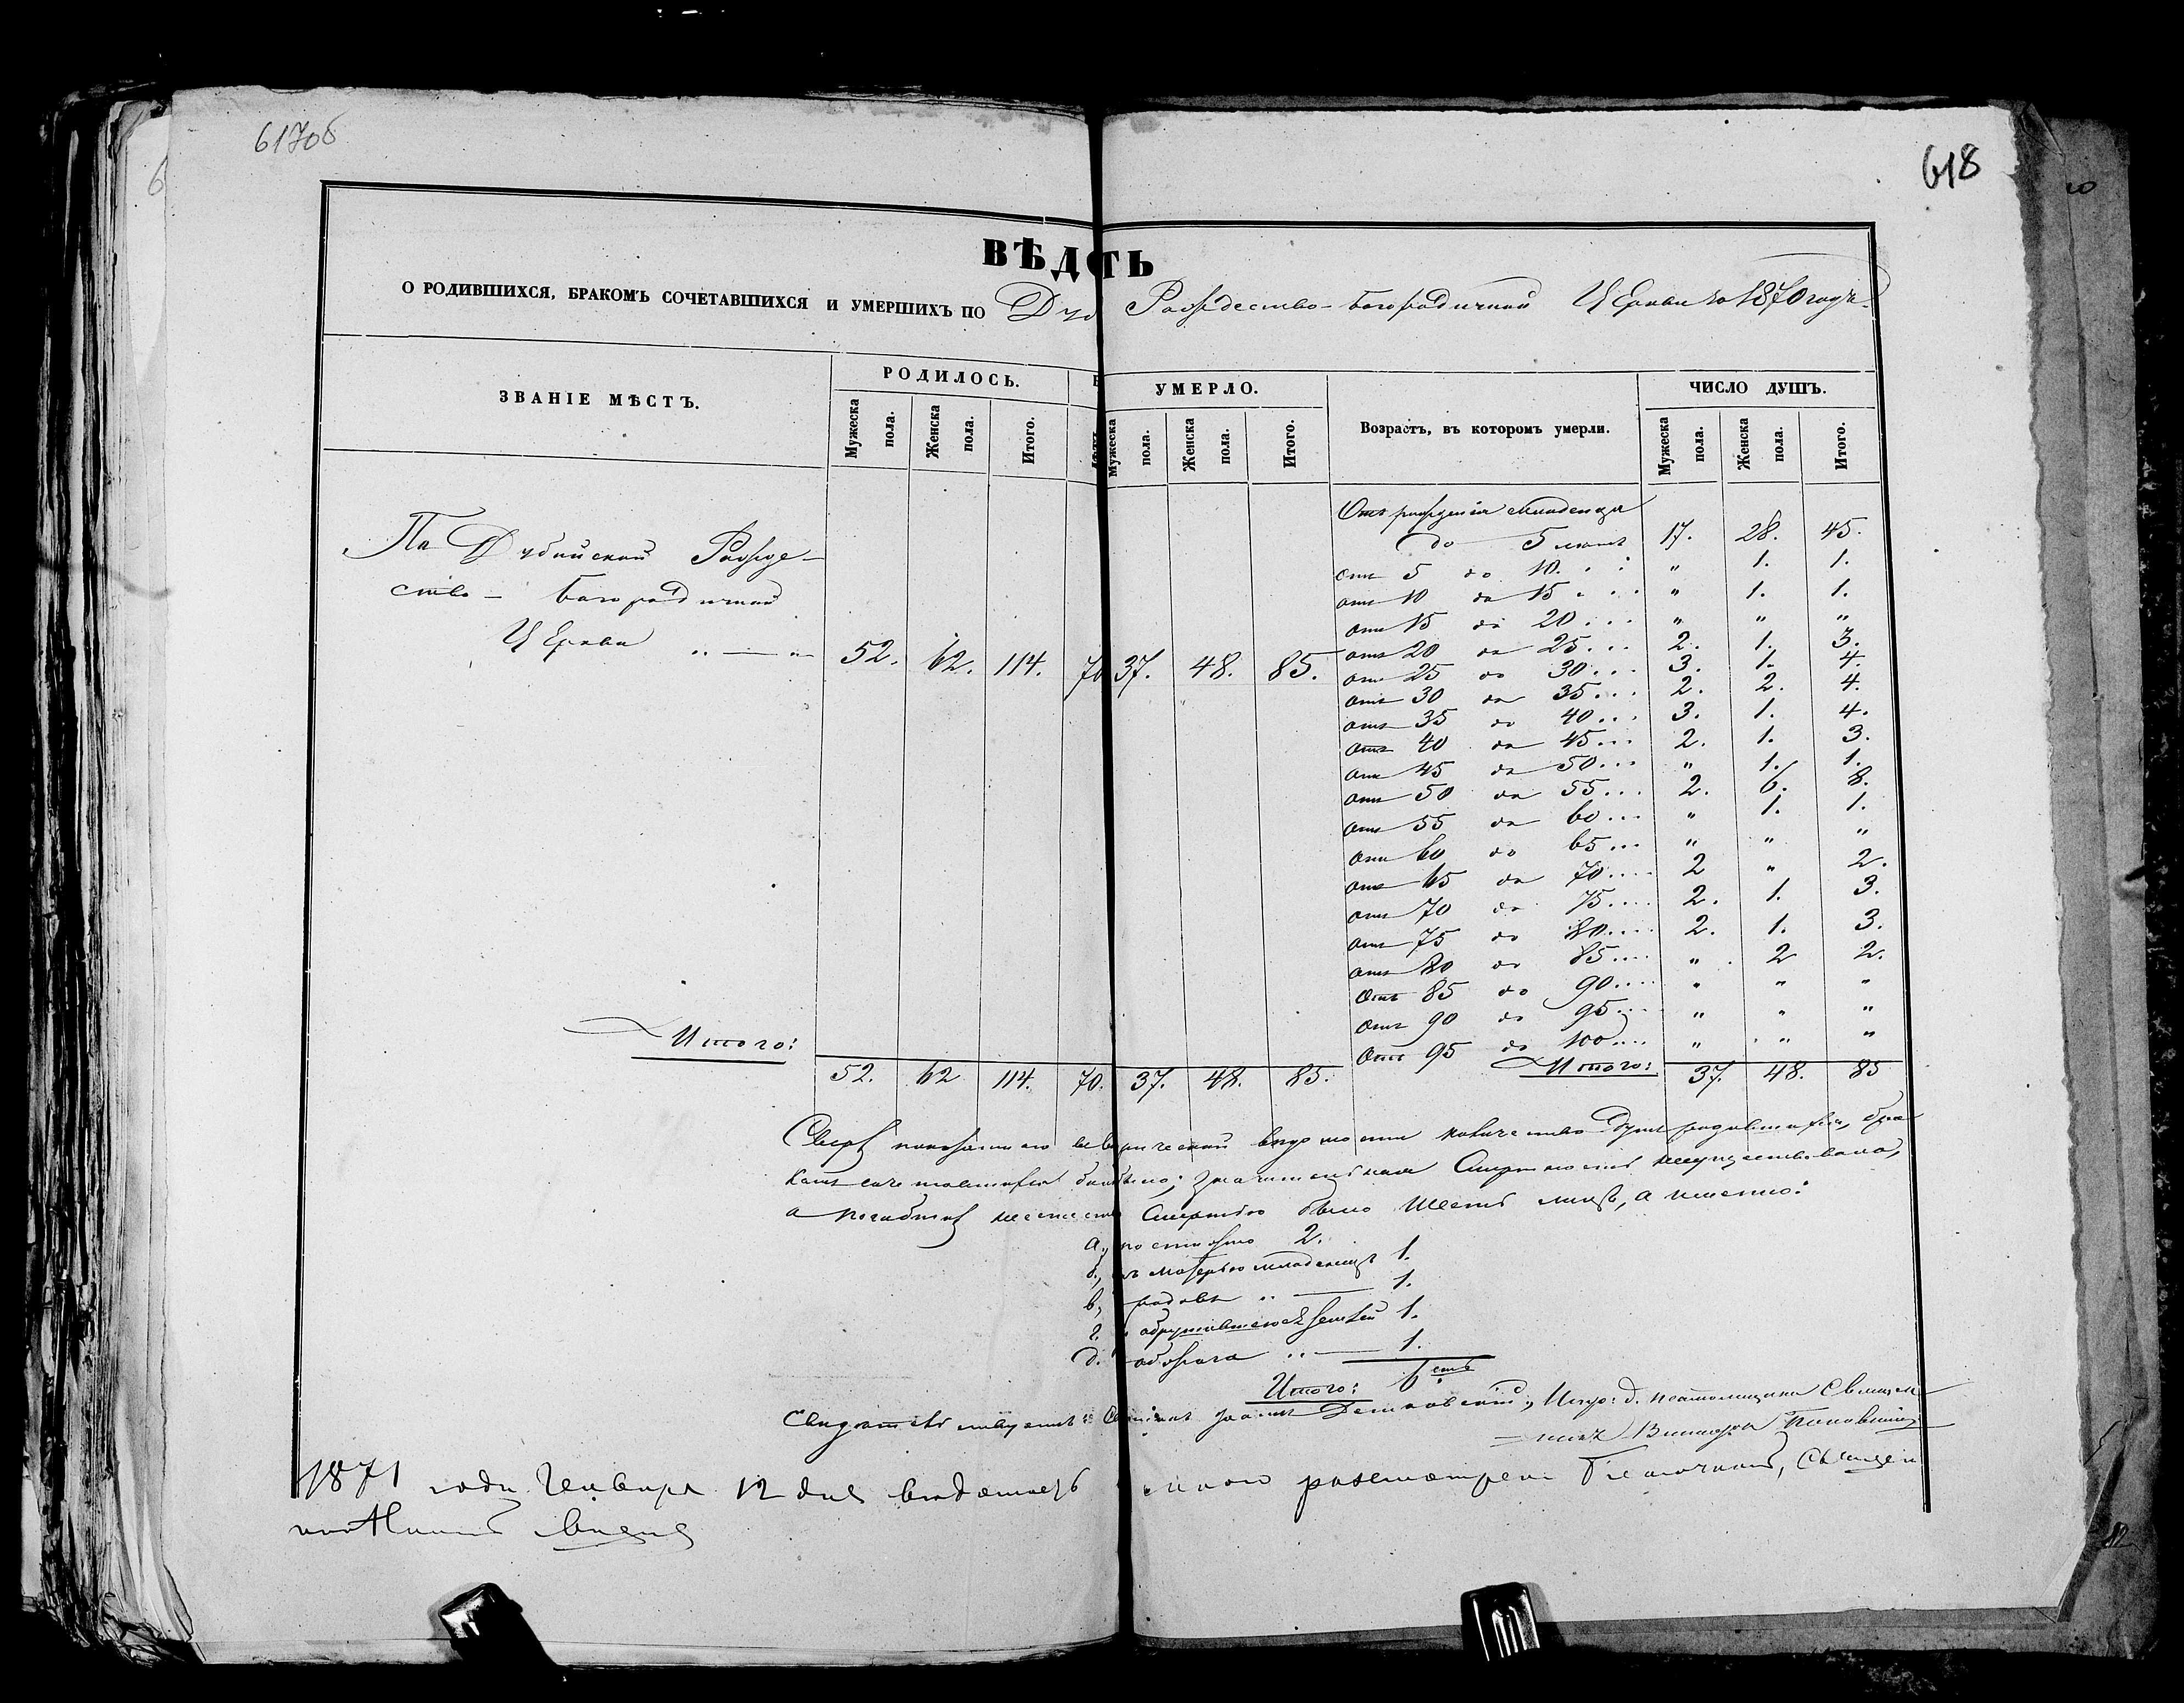 617об
618
ВѢДО ТЬ
О РОДИВШИХСЯ, БРАКОМЪ СОЧЕТАВШИХСЯ И УМЕРШИХЪ ПО Ду Рождество-Богородичной Церкви за 1870 годъ
ЗВАНІЕ МѢСТЪ.
РОДИЛОСЬ.
Мужеска пола.
Женска пола.
Итого.
УМЕРЛО.
Мужеска пола.
Женска пола.
Итого.
Возрастъ, въ которомъ умерли.
ЧИСЛО ДУШЪ.
Мужеска пола.
Женска пола.
Итого.
По Дубинской Рожде-
ство- Богородичной
Церкви „ — „ 52. 62. 114. 70 37. 48. 85.
Отъ рожденія младенца
до 5 лѣтъ 17. 28. 45.
отъ 5 до 10. . . „ 1. 1.
отъ 10 до 15 . . . „ 1. 1.
отъ 15 до 20 . . . „ „ „
отъ 20 до 25 . . . 2. 1. 3.
отъ 25 до 30 . . . 3. 1. 4.
отъ 30 до 35 . . . 2. 2. 4.
отъ 35 до 40 . . . 3. 1. 4.
отъ 40 до 45 . . . 2. 1. 3.
отъ 45 до 50 . . . „ 1. 1.
отъ 50 до 55 . . . 2. 6. 8.
отъ 55 до 60 . . . „ 1. 1.
отъ 60 до 65 . . . „ „ „
отъ 65 до 70 . . . . 2 „ 2.
отъ 70 до 75 . . . . 2. 1. 3.
отъ 75 до 80 . . . . 2. 1. 3.
отъ 80 до 85 . . . . „ 2 2.
отъ 85 до 90 . . . . „ „ „
отъ 90 до 95 . . . „ „ „
отъ 95 до 100 . . . . „ „ „
Итого: 52. 62 114. 70. 37. 48. 85. Итого: 37. 48. 85
Сверхъ показаннаго въ вѣдомости количества душъ родившихся, бра-
комъ сочетавшихся не было; значительная смертность не существовала,
а погибшихъ смертію было шесть лицъ, а именно:
а., 2.
б., младенецъ 1.
в., родовъ „ — 1.
г. обрушившейся земли 1.
д. „ — 1.
Итого: 6.сть
Свидѣтельствуютъ: Іоаннъ Испр: д. Священ-
никъ Викторъ
1871 года Генваря 12 дня разсмотрена Благочинный, Священ
никъ